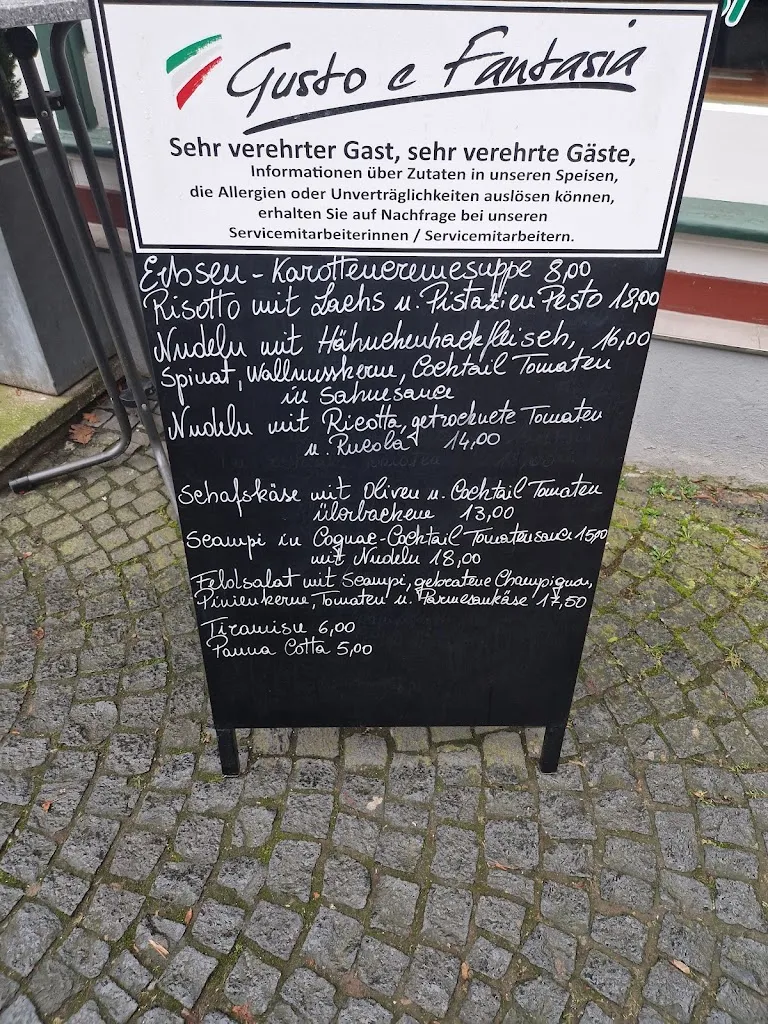 Gusto e Fantasia
Sehr verehrter Gast, sehr verehrte Gäste,
Informationen über Zutaten in unseren Speisen,
die Allergien oder Unverträglichkeiten auslösen können,
erhalten Sie auf Nachfrage bei unseren
Servicemitarbeiterinnen / Servicemitarbeitern.
Erbsen-Karottencremesuppe 8,00
Risotto mit Lachs u. Pistazien Pesto 18,00
Nudeln mit Hähnchenhackfleisch, 16,00
Spinat, Wallnusskerne, Cocktail Tomaten
in Sahnesauce
Nudeln mit Ricotta, getrocknete Tomaten
u. Rucola 14,00
Schafskäse mit Oliven u. Cocktail Tomaten
überbackene 13,00
Scampi in Cognac-Cocktail Tomatensauce 15,00
mit Nudeln 18,00
Feldsalat mit Scampi, gebratene Champignon,
Pinienkerne, Tomaten u. Parmesankäse 17,50
Tiramisu 6,00
Panna Cotta 5,00